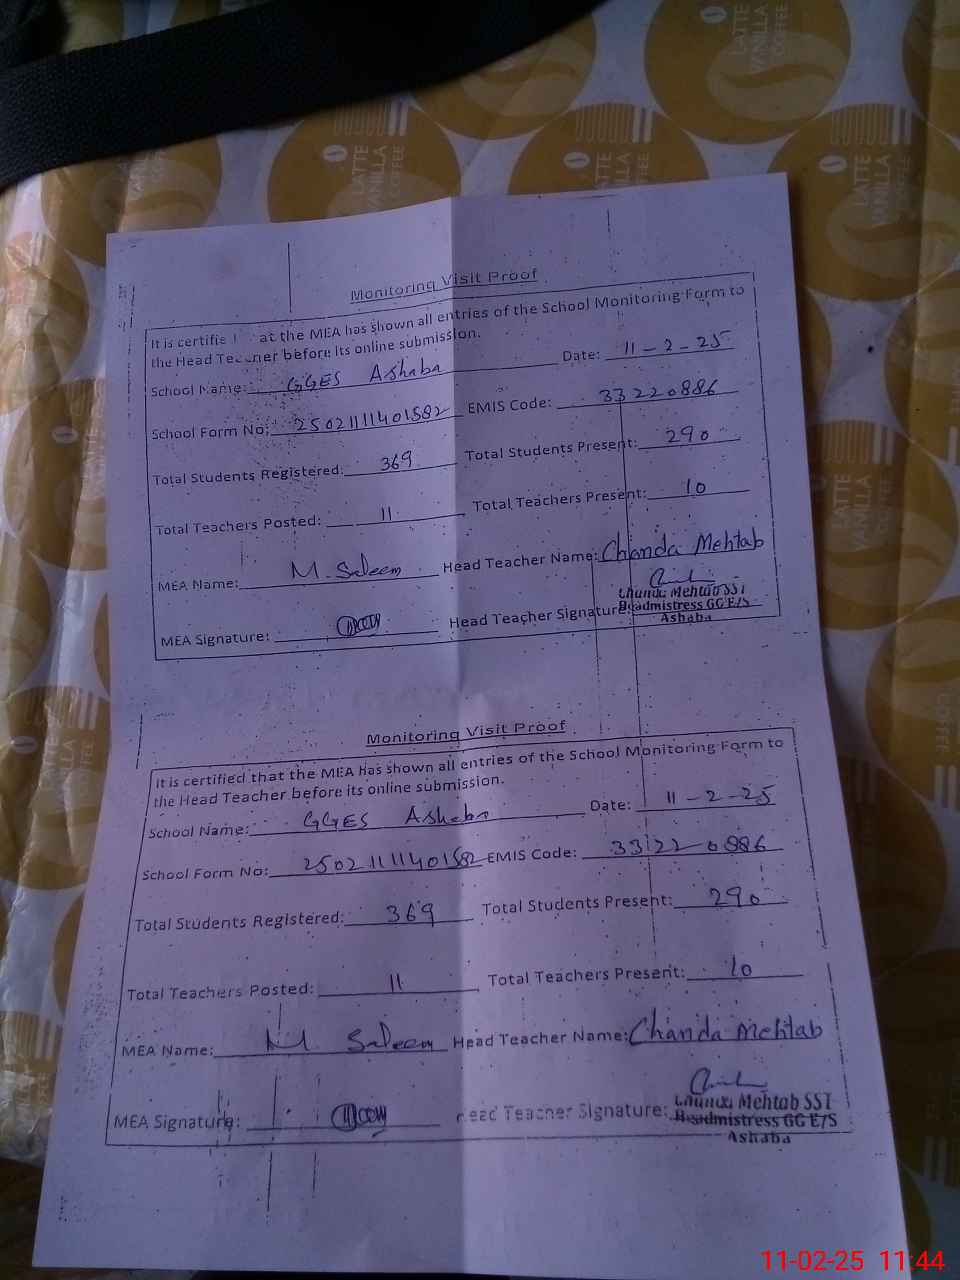 LATTE VANILLA COFFEE
LATTE VANILLA COFFEE
LATTE VANILLA COFFEE
LATTE VANILLA COFFEE
Monitoring Visit Proof
It is certifie at the MEA has shown all entries of the School Monitoring Form to
the Head Teacher before its online submission.
School Name: GGES Ashaba Date: 11-2-25
School Form No: 2502111401582 EMIS Code: 33220886
Total Students Registered: 369 Total Students Present: 290
Total Teachers Posted: 11 Total Teachers Present: 10
MEA Name: M. Saleem Head Teacher Name: Chanda Mehtab
MEA Signature: Head Teacher Signature:
Chanda Mehtab SST
Headmistress GGE/S
Ashaba
Monitoring Visit Proof
It is certified that the MEA has shown all entries of the School Monitoring Form to
the Head Teacher before its online submission.
School Name: GGES Ashaba Date: 11-2-25
School Form No: 2502111401582 EMIS Code: 33220886
Total Students Registered: 369 Total Students Present: 290
Total Teachers Posted: 11 Total Teachers Present: 10
MEA Name: M. Saleem Head Teacher Name: Chanda Mehtab
MEA Signature: Head Teacher Signature:
Chanda Mehtab SST
Headmistress GGE/S
Ashaba
11-02-25 11:44